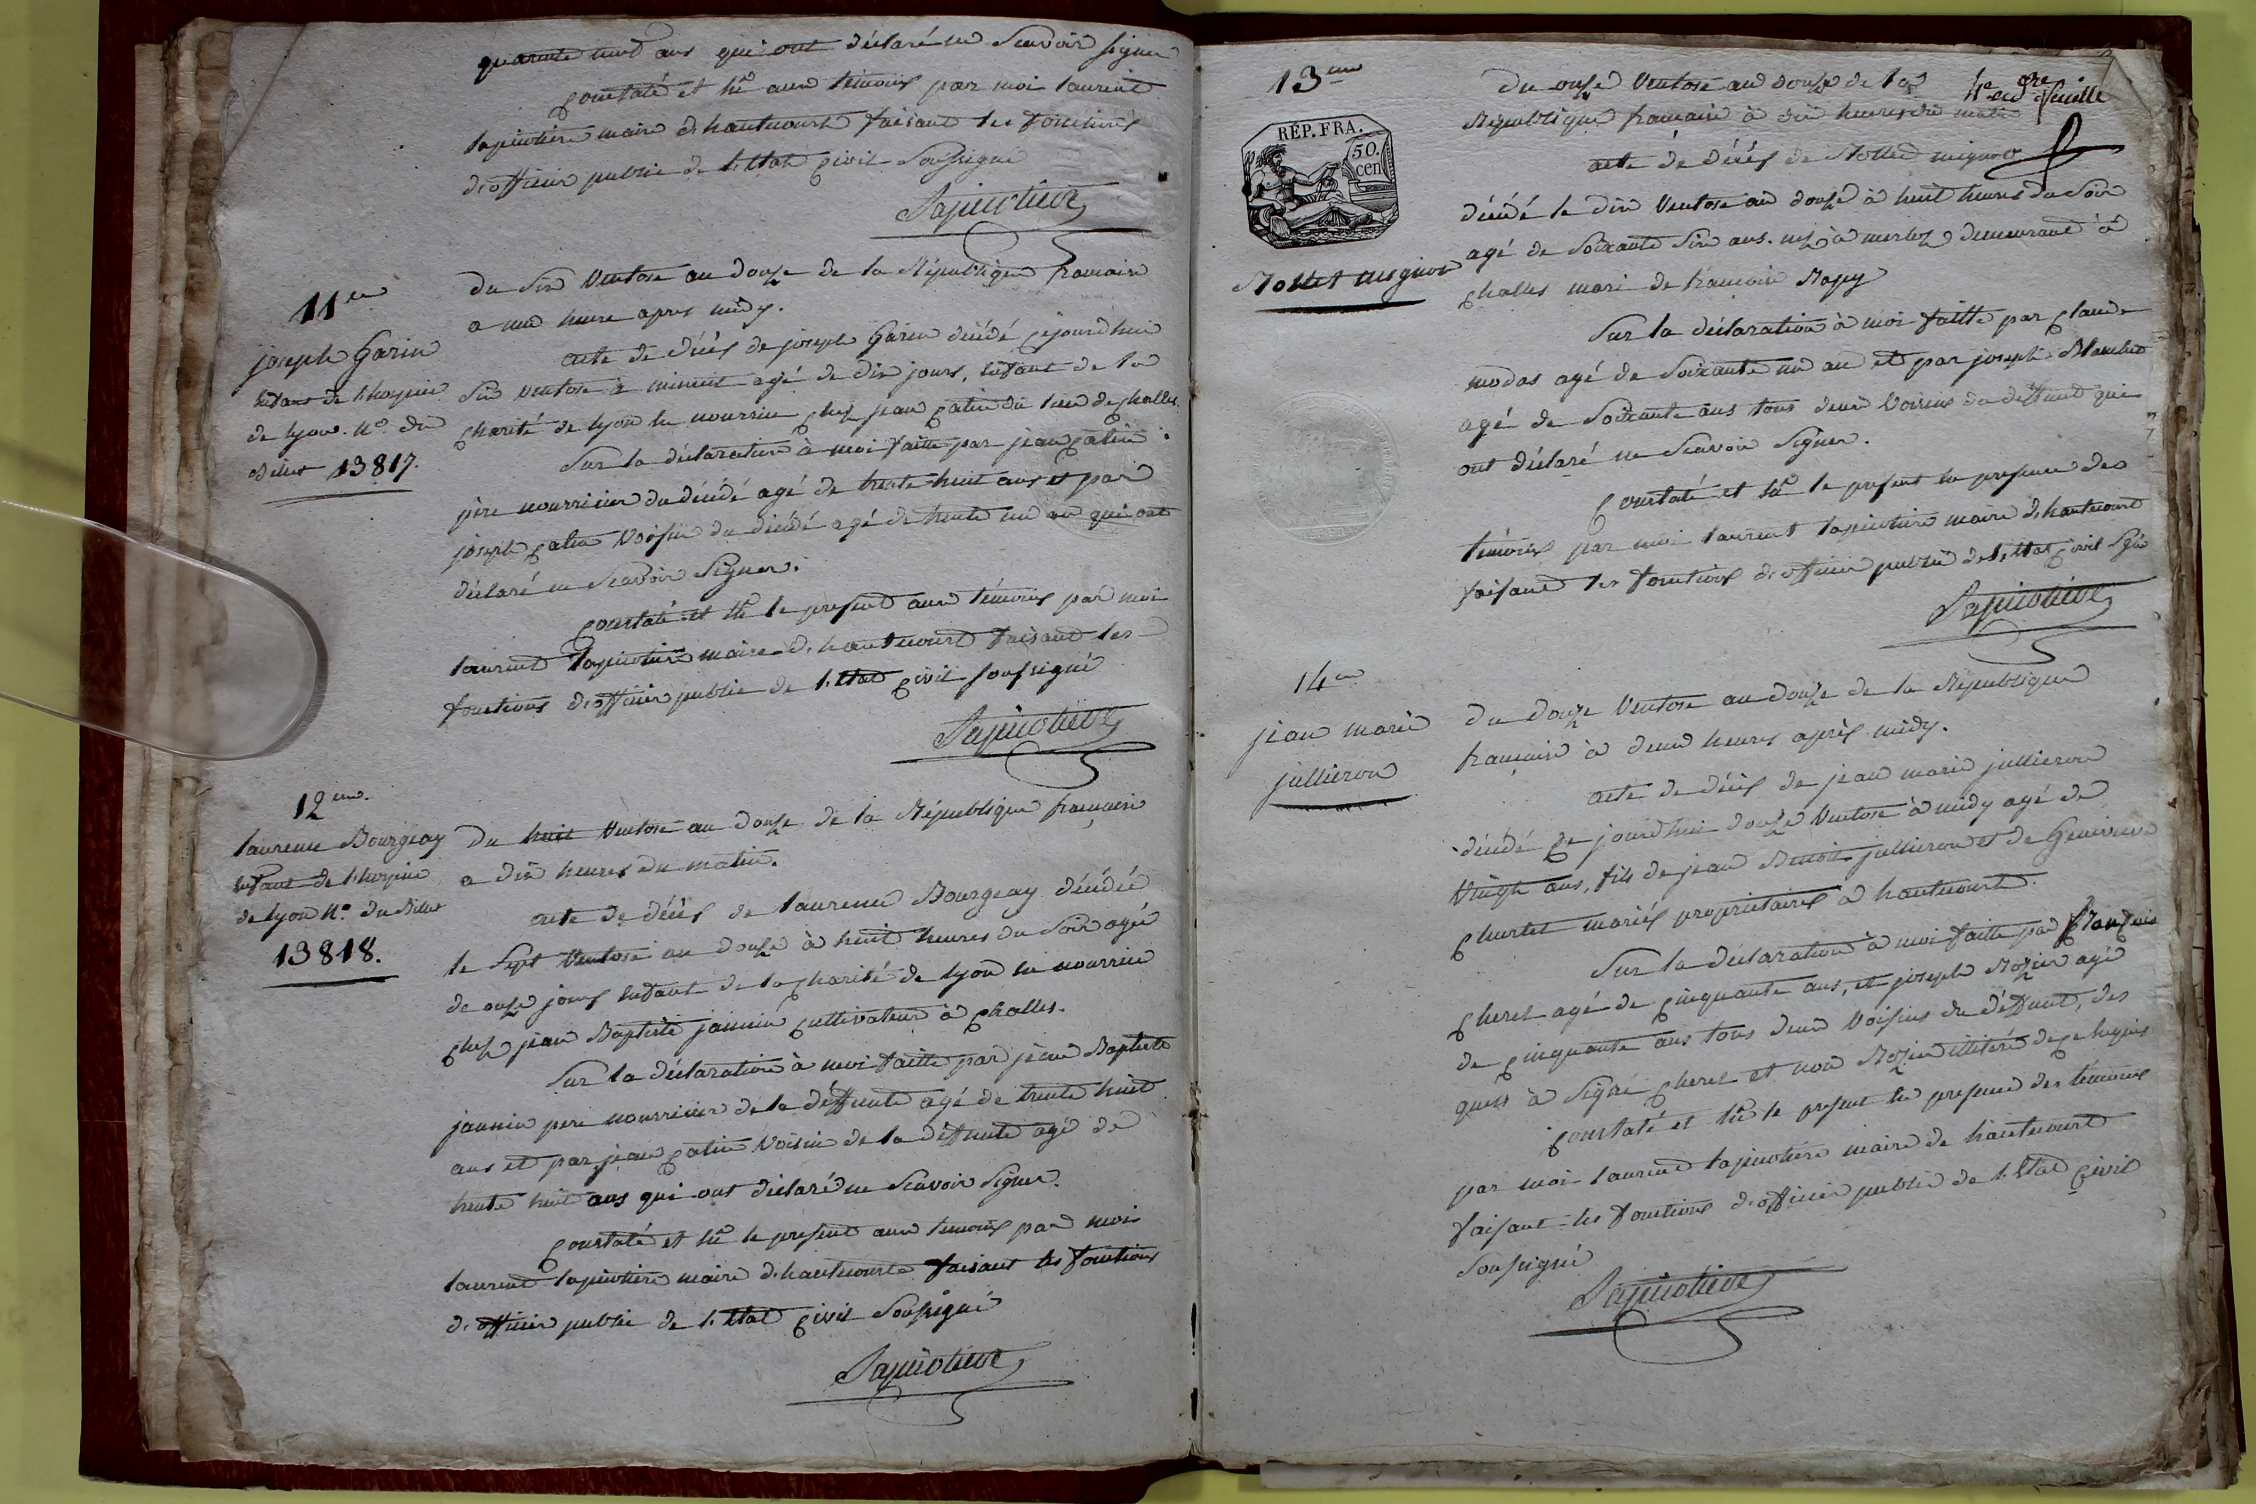 quarante neuf ans qui ont déclaré ne Scavoir signer
Constaté et lû aux témoins par moi laurent
lapierre maire d'hautecourt faisant les fonctions
d'officier public de l'Etat Civil Soussigné
11eme
joseph Garin
Enfant de l'hospice
de lyon. No. du
Billet 13817.
Du Six Ventose an douze de la République francaise
a une heure apres midy.
acte de décès de joseph Garin décédé Cejourd'hui
Six Ventose à minuit agé de dix jours, Enfant de la
Charité de lyon en nourrice Chez jean Catin du lieu de Challes.
Sur la déclaration à moi faitte par jean Catin
père nourricier du décédé agé de trente huit ans et par
joseph Catin Voisin du décédé agé de trente un an qui ont
déclaré ne Scavoir Signer.
Constaté et lû le present aux témoins par moi
laurent maire d'hautecourt faisant les
fonctions d'officier public de l'Etat Civil soussigné
12eme.
laurence Bourgeay
Enfant de l'hospice
de lyon No. du Billet
13818.
Du huit Ventose an douze de la République française
a dix heures du matin.
acte de décès de laurence Bourgeay décédée
le Sept Ventose an douze à huit heures du Soir agée
de onze jours Enfant de la Charité de lyon en nourrice
Chez jean Baptiste jannin Cultivateur à Challes.
Sur la déclaration à moi faitte par jean Baptiste
jannin pere nourricier de la déffunte agé de trente huit
ans et par jean Catin Voisin de la déffunte agé de
trente huit ans qui ont déclaré ne Scavoir Signer.
Constaté et lû le present aux temoins par moi
laurent maire d'hautecourt faisant les fonctions
d'officier public de l'Etat Civil Soussigné
13eme
RÉP. FRA.
50.
cen
4e feuille
Mollet mignon
Du onze Ventose an douze de la
République francaise à dix heures du matin
acte de décès de Mollet mignon
décédé le dix Ventose an douze à huit heures du Soir
agé de Soixante Six ans. né à demeurant à
Challes mari de francoise
Sur la déclaration à moi faitte par Claude
modas agé de Soixante un an et par joseph
agé de Soixante ans tous deux Voisins du deffunt qui
ont déclaré ne Scavoir Signer.
Constaté et lû le present en presence des
témoins par moi laurent maire d'hautecourt
faisant les fonctions d'officier public de l'Etat Civil
14eme
jean marie
jullieron
Du Douze Ventose an douze de la République
française à deux heures après midy.
acte de décès de jean marie jullieron
décédé Ce jourd'hui douze Ventose à midy agé de
Vingt ans, fils de jean Benoit jullieron et de Genevieve
mariés propriétaires à hautecourt.
Sur la déclaration à moi faitte par François
Cheret agé de Cinquante ans, et joseph Rozier agé
de Cinquante ans tous deux Voisins du déffunt, des
quels à Signé Cheret et non Rozier illitéré de Ce
Constaté et lû le present en presence des témoins
par moi laurent maire de hautecourt
faisant les fonctions d'officier public de l'Etat Civil
Soussigné